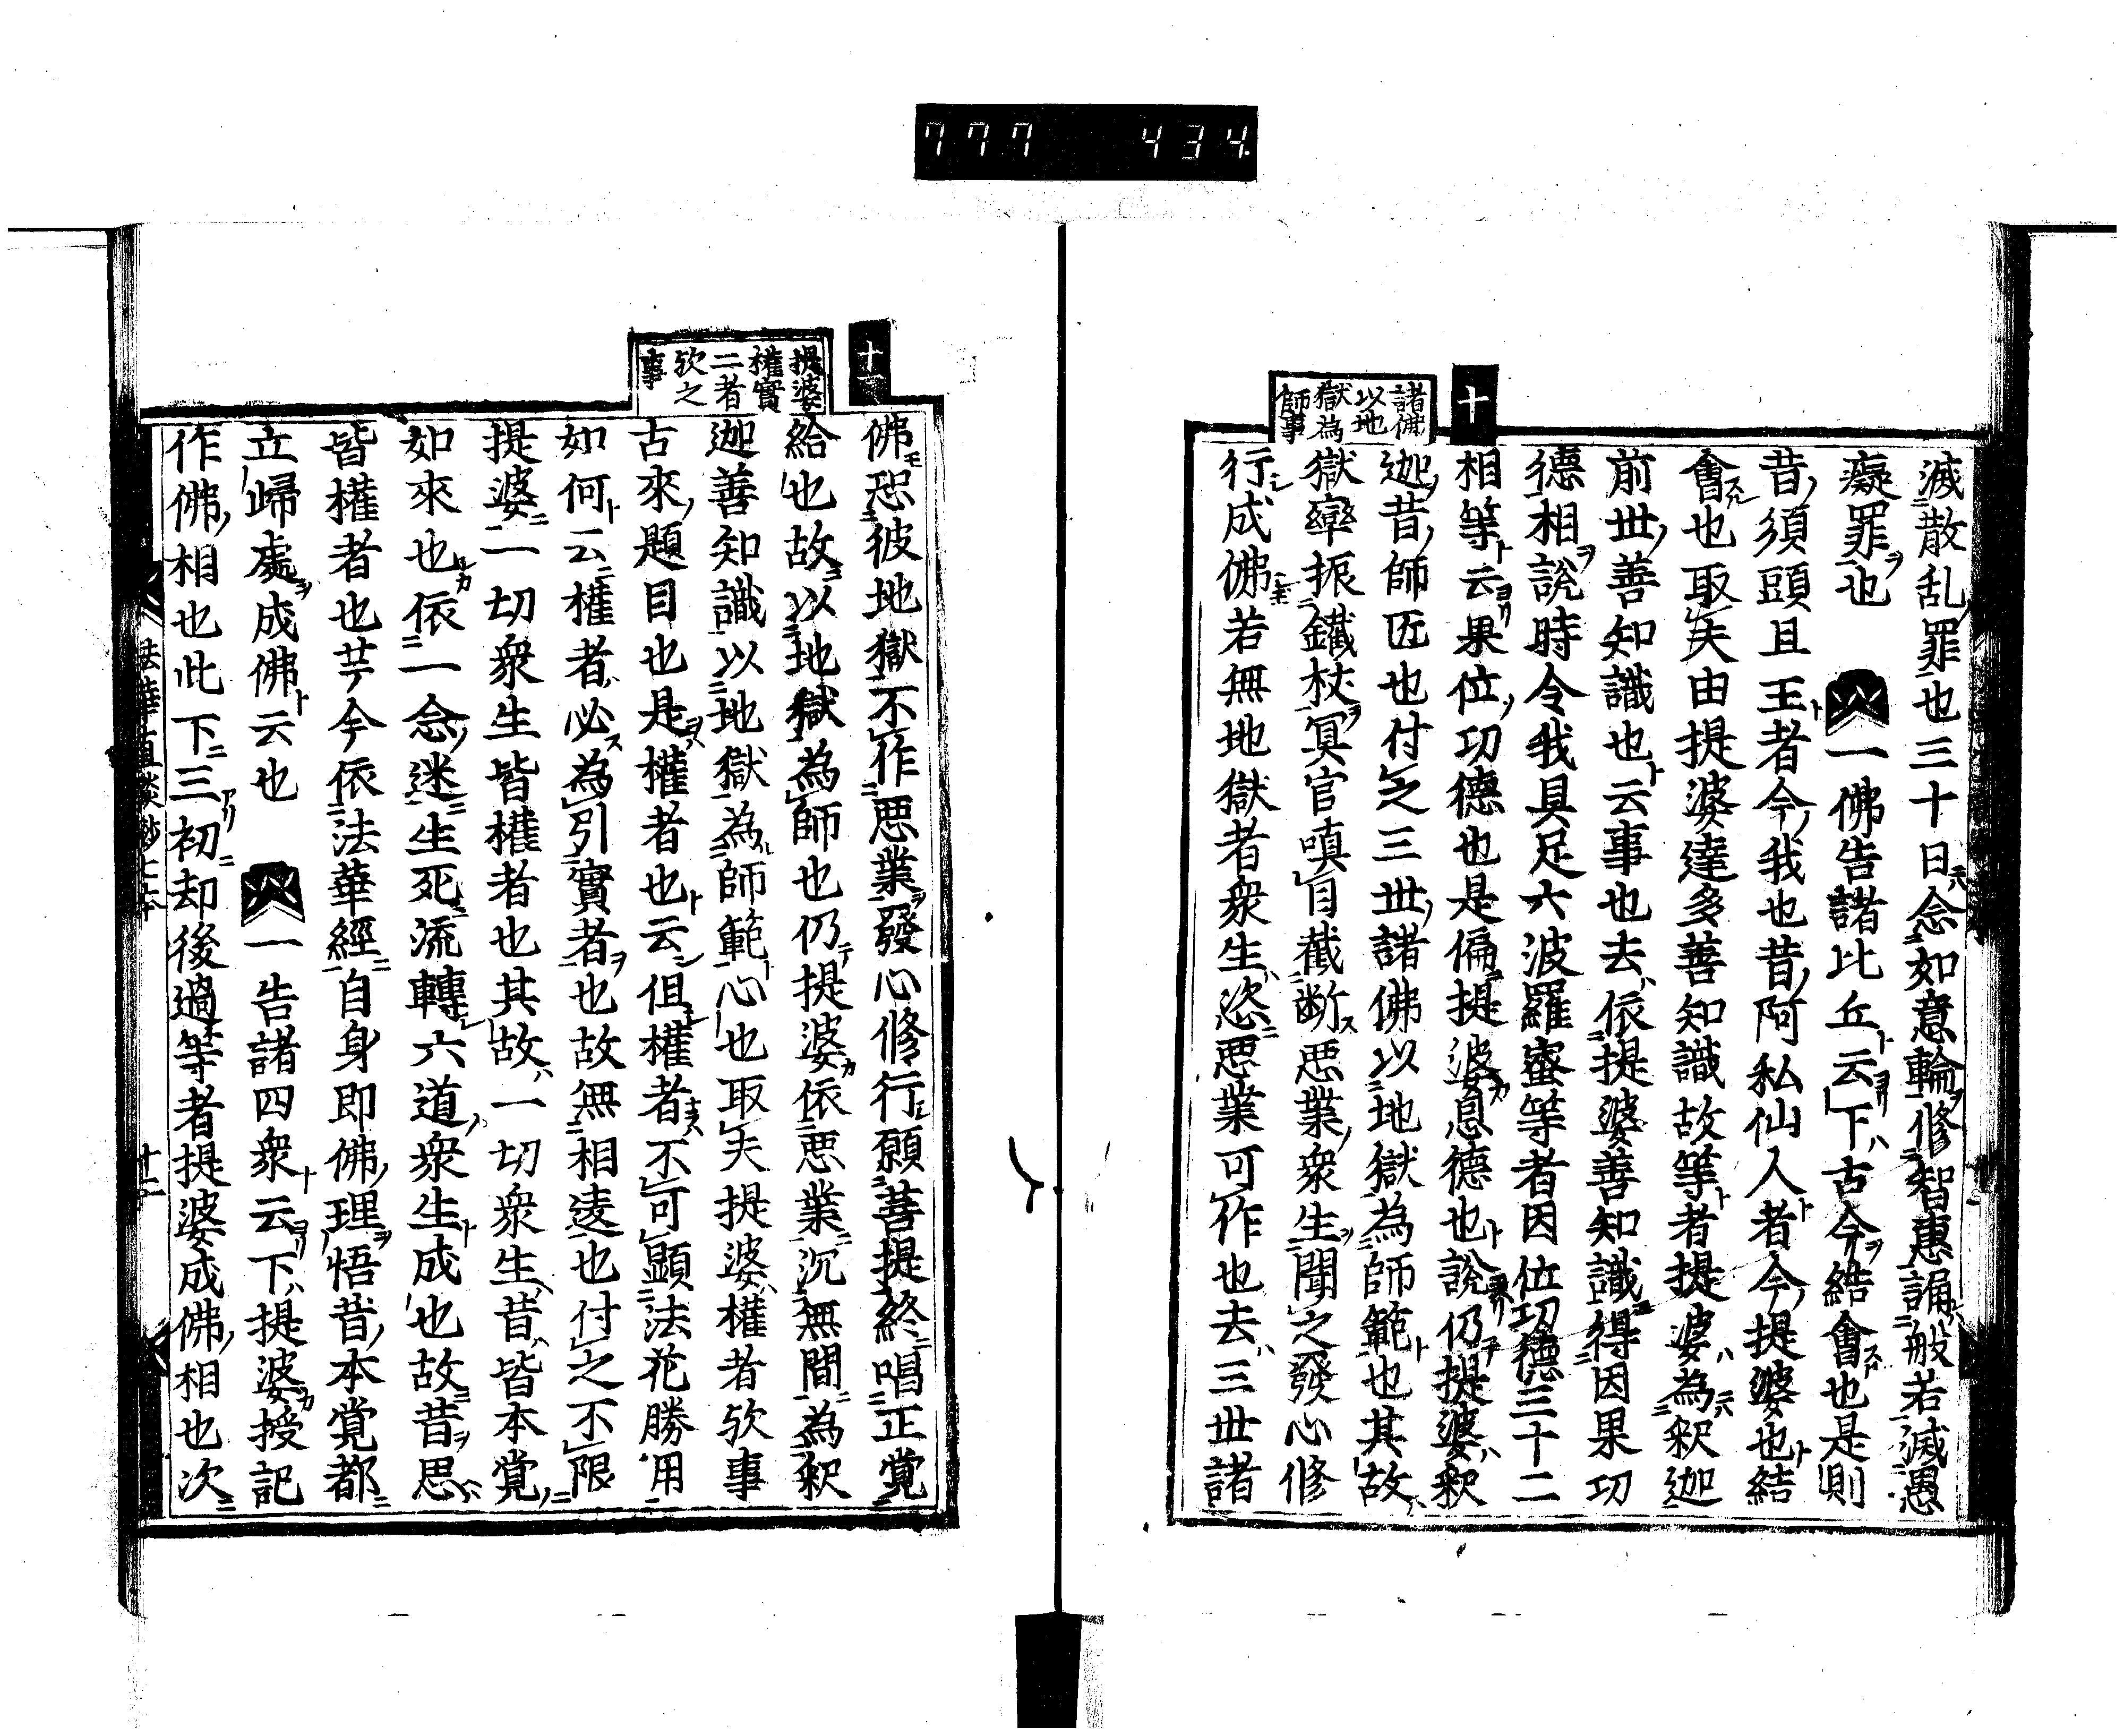 777 434.
十
諸佛
以地
獄為
師事
滅散乱罪也三十日念如意輪修智惠誦般若滅愚
癡罪也 一佛告諸比丘云下古今結會也是則
昔須頭且王者今我也昔阿私仙人者今提婆也結
會也取夫由提婆達多善知識故等者提婆為釈迦
前世善知識也云事也去依提婆善知識得因果功
德相說時令我具足六波羅蜜等者因位功德三十二
相等云果位功德也是偏提婆息德也說仍提婆釈
迦昔師匠也付之三世諸佛以地獄為師範也其故
獄率振鐵杖冥官嗔自截断悪業衆生聞之發心修
行成佛若無地獄者衆生恣悪業可作也去三世諸
十一
提婆
權實
二者
欤之
事
佛恐彼地獄不作悪業發心修行願菩提終唱正覚
給也故以地獄為師也仍提婆依悪業沉無間為釈
迦善知識以地獄為師範心也取夫提婆權者欤事
古來題目也是權者也云但權者不可顕法花勝用
如何云權者必為引實者也故無相違也付之不限
提婆一切衆生皆權者也其故一切衆生昔皆本覚
如來也依一念迷生死流轉六道衆生成也故昔思
皆權者也𦬇今依法華經自身即佛理悟昔本覚都
立歸處成佛云也 一告諸四衆云下提婆授記
作佛相也此下三初却後過等者提婆成佛相也次
法華直談鈔七本 十二